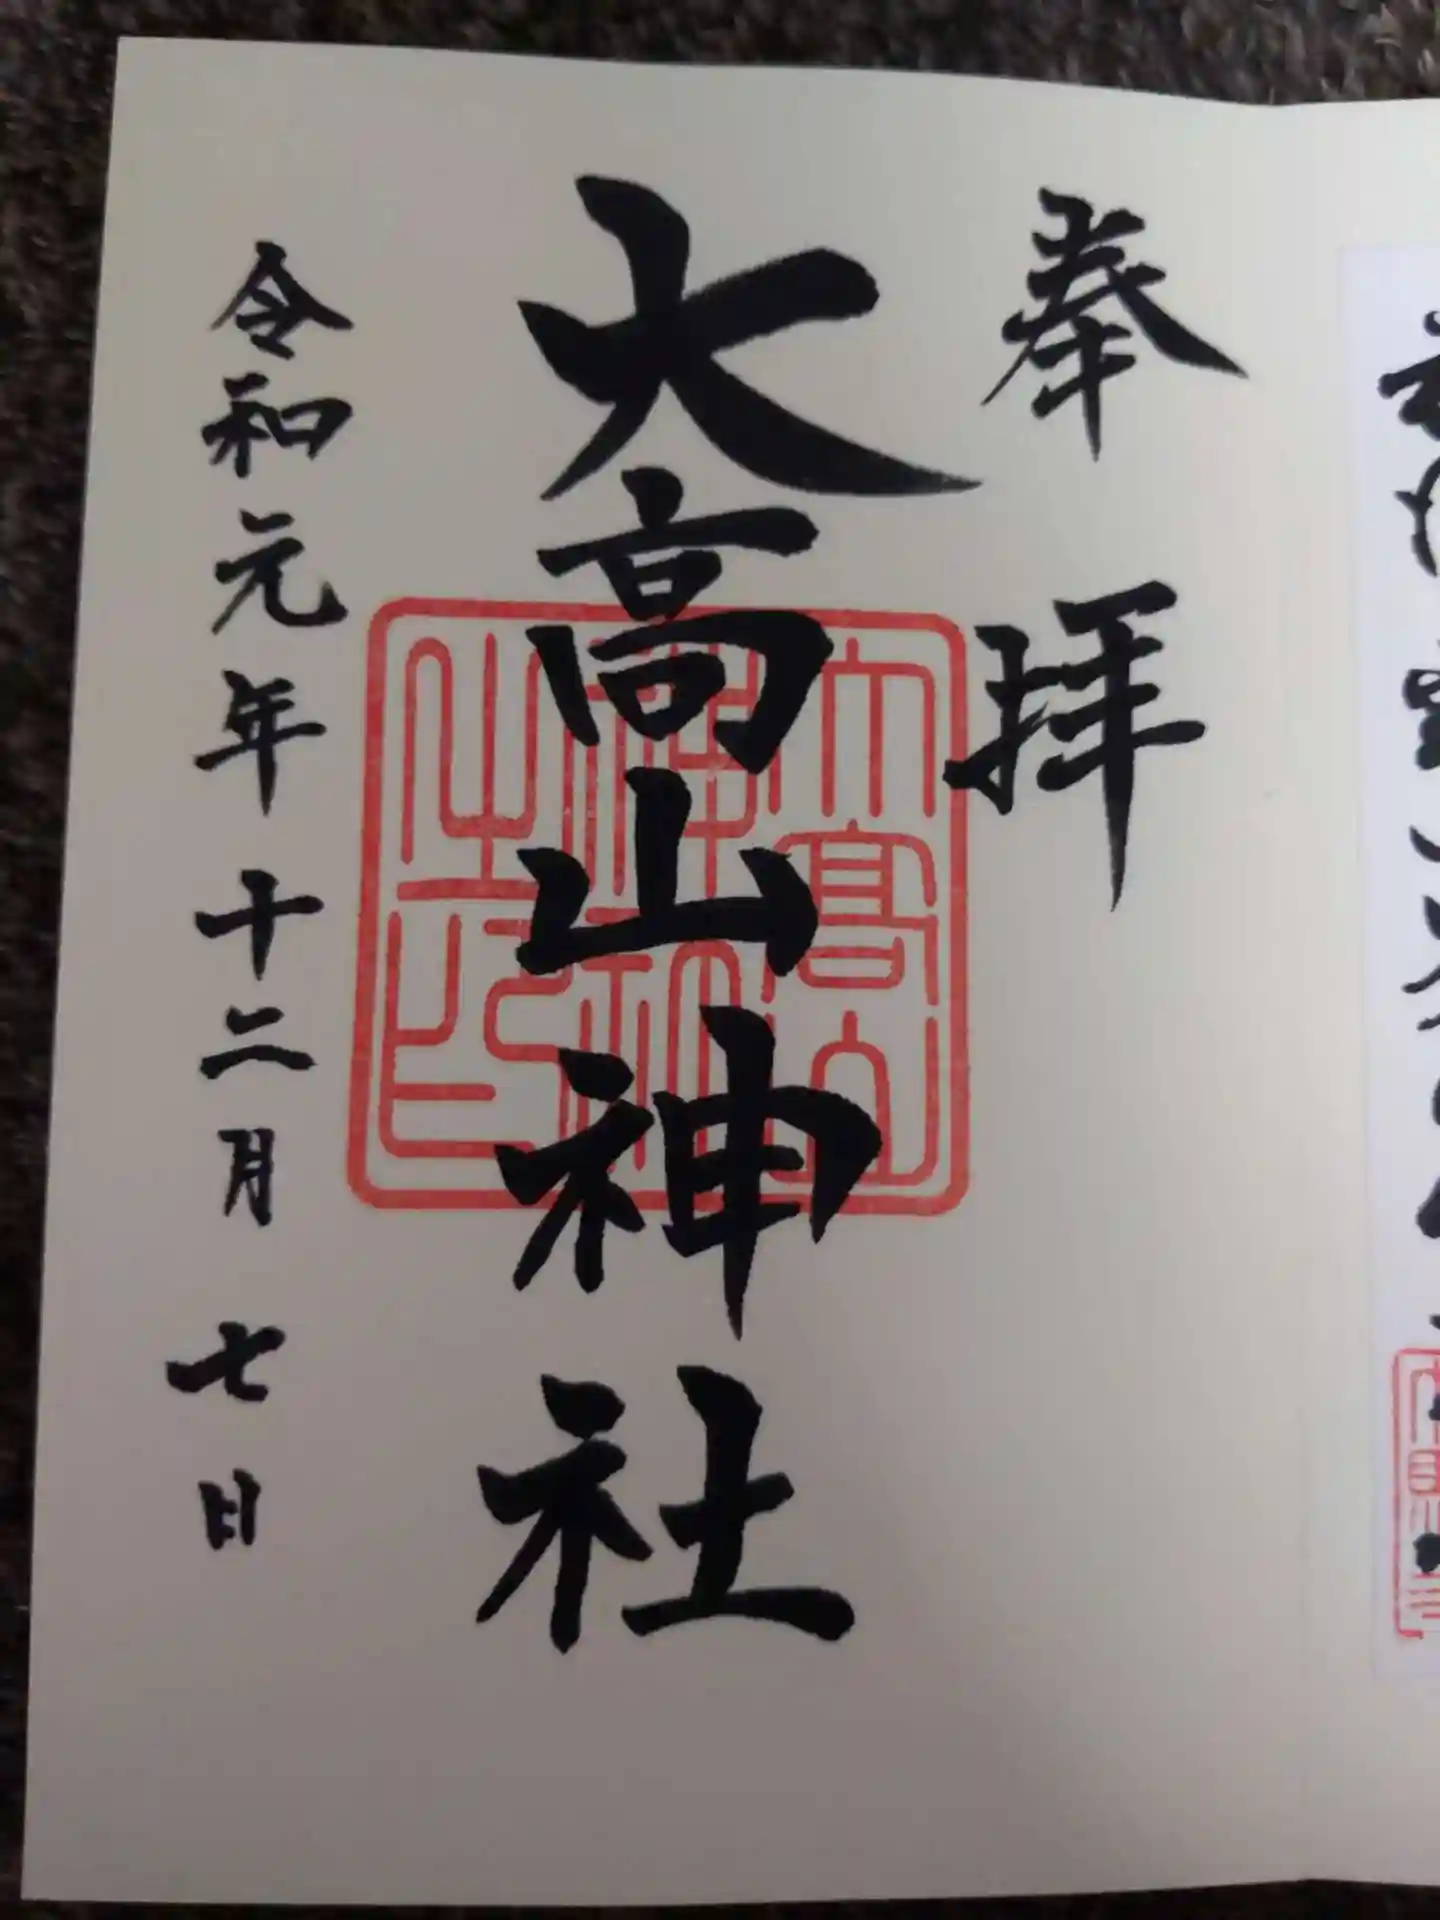 奉拝
大高山神社
大高山神社之印
令和元年十二月七日